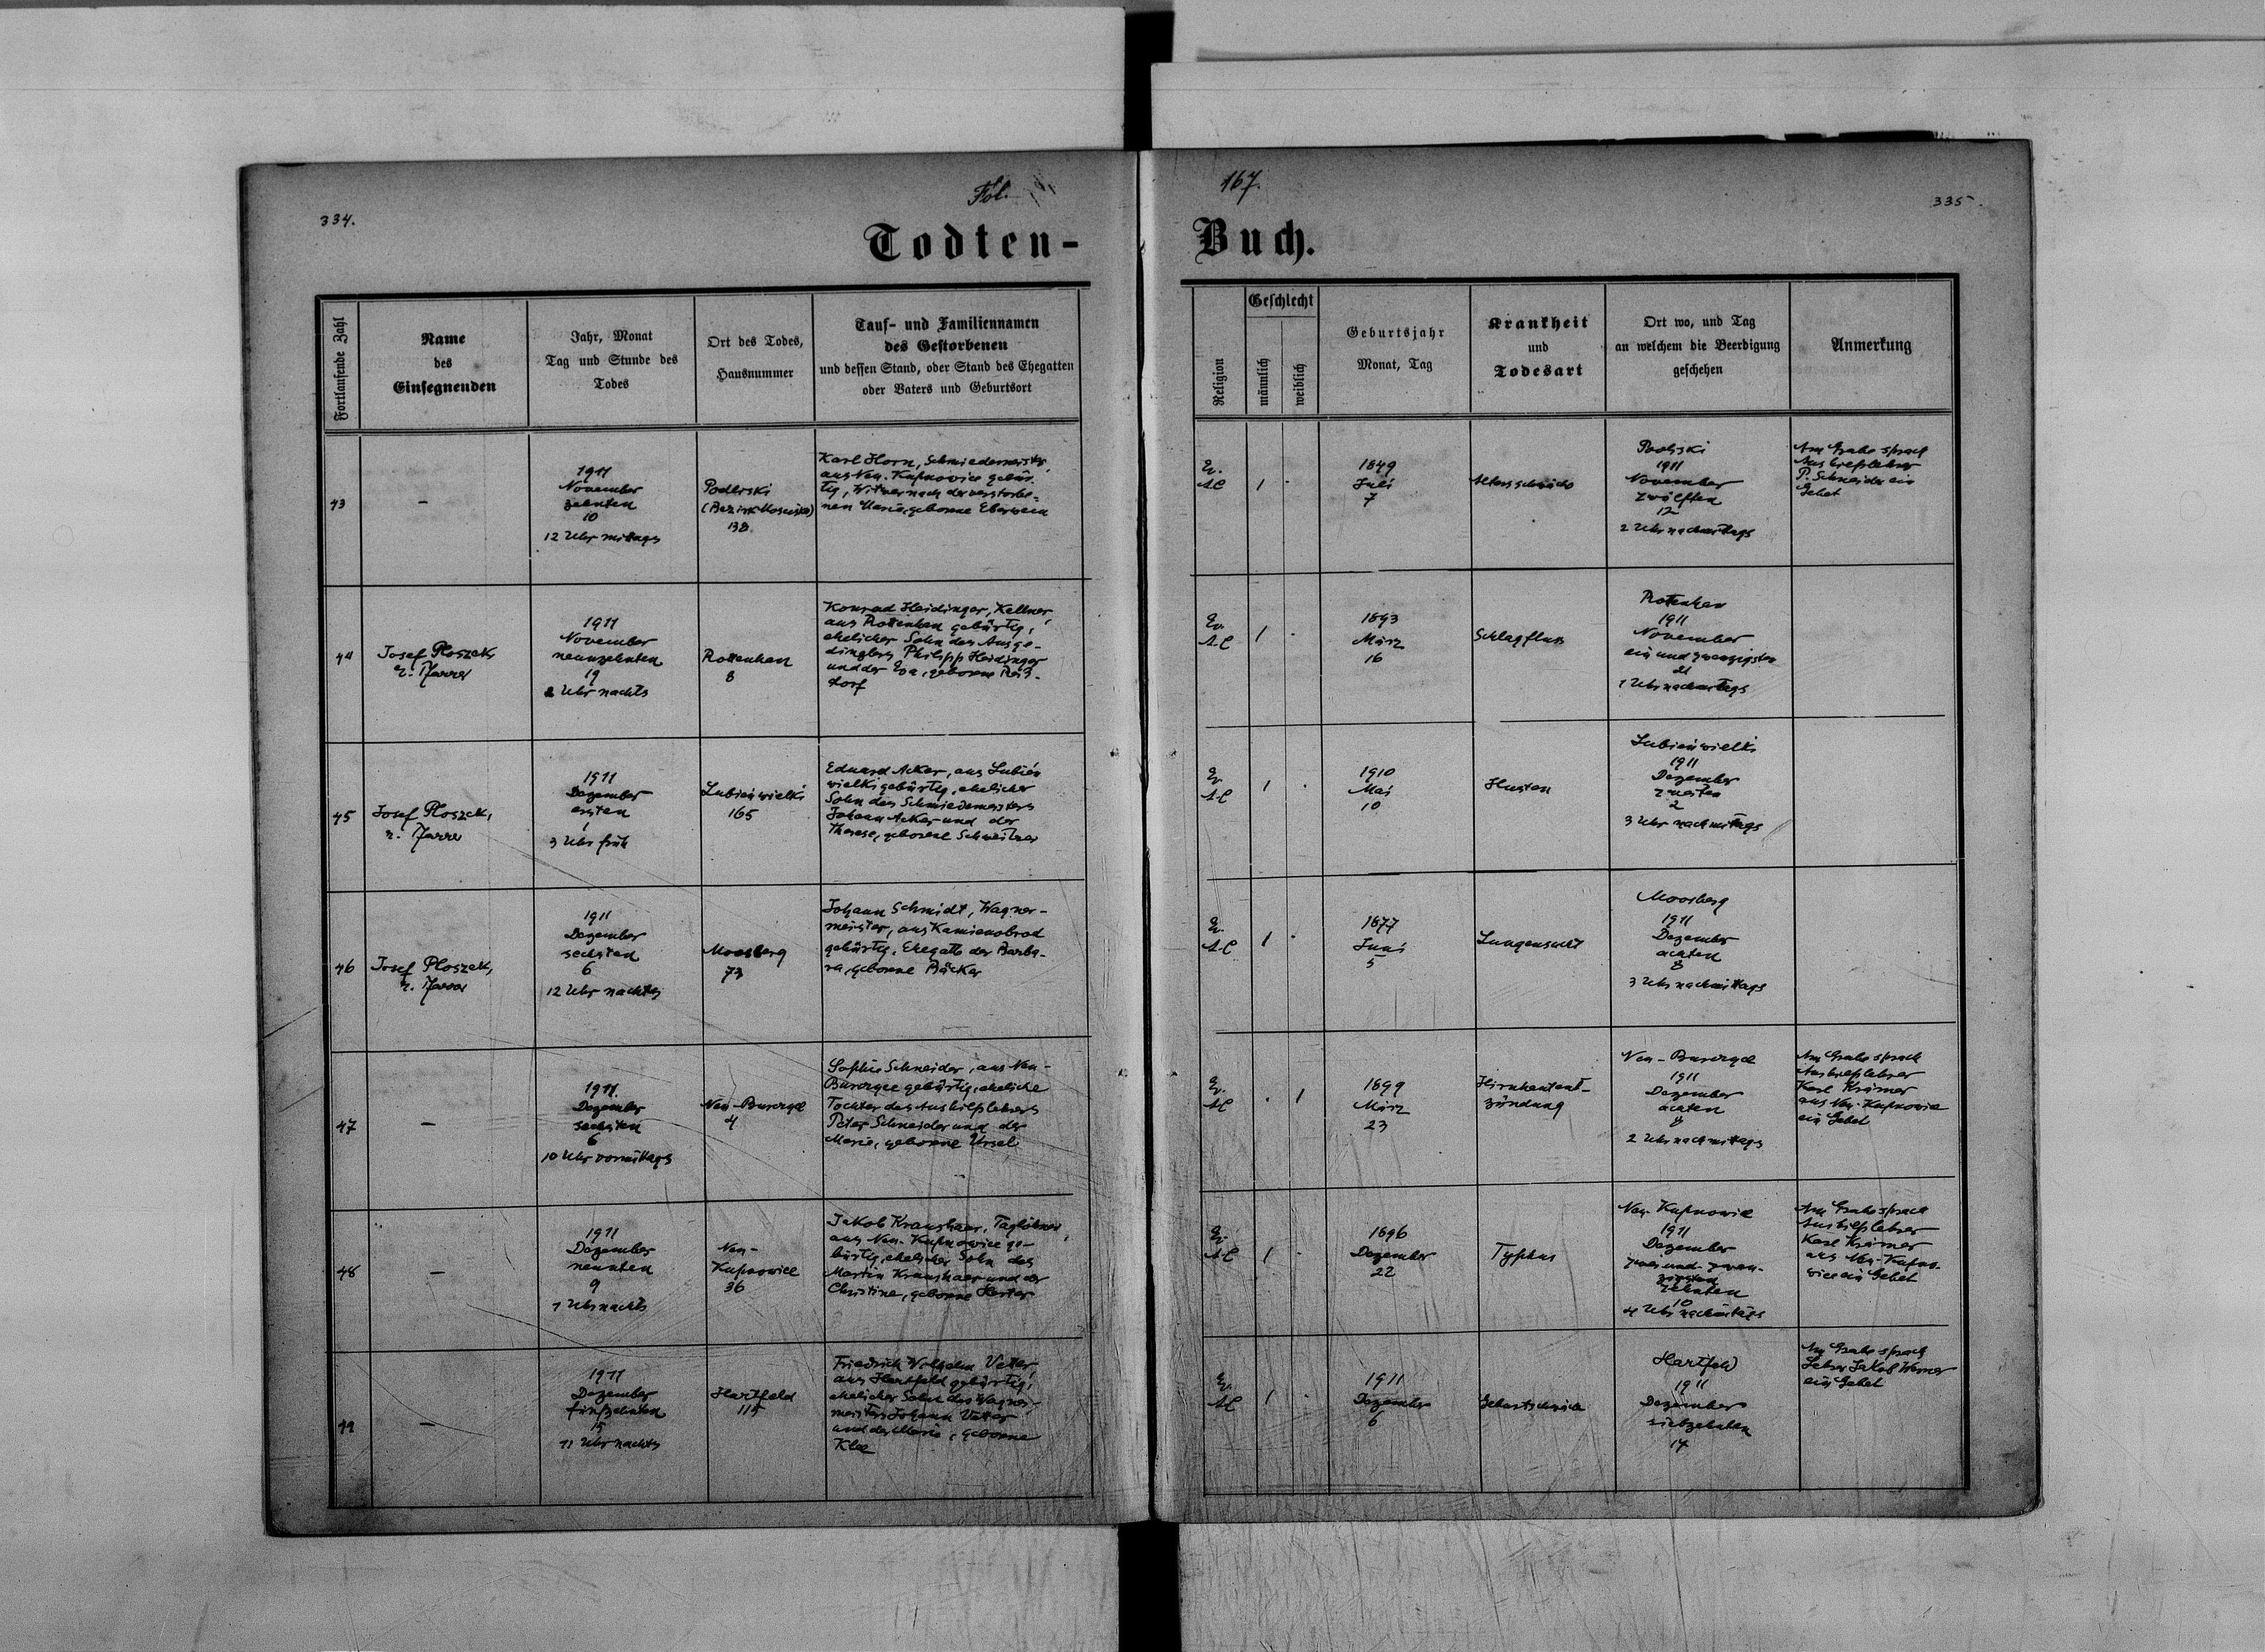 334.
Fol.
167.
335.
Todten-
Buch.
Fortlaufende Zahl
Name
des
Einsegnenden
Jahr, Monat
Tag und Stunde des
Todes
Ort des Todes,
Hausnummer
Tauf- und Familiennamen
des Gestorbenen
und dessen Stand, oder Stand des Ehegatten
oder Vaters und Geburtsort
Religion
Geschlecht
männlich
weiblich
Geburtsjahr
Monat, Tag
Krankheit
und
Todesart
Ort wo, und Tag
an welchem die Beerdigung
geschehen
Anmerkung
43
–
1911
November
zehnten
10
12 Uhr mittags
Podliski
(Bezirk Mosciska)
138
Karl Horn, Schmiedemeister,
aus Neu-Kupnowice gebür-
tig, Witwer nach der verstorbe-
nen Maria, geborene Eberwein
Ev.
AC
1
.
1849
Juli
7
Altersschwäche
Podliski
1911
November
zwölften
12
2 Uhr nachmittags
Am Grabe sprach
Aushilfslehrer
P. Schneider ein
Gebet
44
Josef Ploszek,
ev. Pfarrer
1911
November
neunzehnten
19
2 Uhr nachts
Rottenhan
8
Konrad Heidinger, Kellner,
aus Rottenhan gebürtig,
ehelicher Sohn des Ausge-
dinglers Philipp Heidinger
und der Eva, geborene Reis-
dorf
Ev.
A.C
1
.
1893
März
16
Schlagfluss
Rottenhan
1911
November
ein und zwanzigsten
21
1 Uhr nachmittags
45
Josef Ploszek,
ev. Pfarrer
1911
Dezember
ersten
1
3 Uhr früh
Lubień wielki
165
Eduard Acker, aus Lubień
wielki gebürtig, ehelicher
Sohn des Schmiedemeisters
Johann Acker und der
Therese, geborene Schweitzer
Ev
A.C
1
.
1910
Mai
10
Husten
Lubień wielki
1911
Dezember
zweiten
2
3 Uhr nachmittags
46
Josef Ploszek,
ev. Pfarrer
1911
Dezember
sechsten
6
12 Uhr nachts
Moosberg
73
Johann Schmidt, Wagner-
meister, aus Kamienobrod
gebürtig, Ehegatte der Barba-
ra, geborene Bäcker
Ev
A.C
1
.
1877
Juni
5
Lungensucht
Moosberg
1911
Dezember
achten
8
3 Uhr nachmittags
47
–
1911
Dezember
sechsten
6
10 Uhr vormittags
Neu-Burczyce
4
Sophie Schneider, aus Neu-
Burczyce gebürtig, eheliche
Tochter des Aushilfslehrers
Peter Schneider und der
Maria, geborene Ursel
Ev.
AC
.
1
1899
März
23
Hirnhautent-
zündung
Neu-Burczyce
1911
Dezember
achten
8
2 Uhr nachmittags
Am Grabe sprach
Aushilfslehrer
Karl Krämer
aus Neu-Kupnowice
ein Gebet
48
–
1911
Dezember
neunten
9
1 Uhr nachts
Neu-
Kupnowice
36
Jakob Kraushaar, Taglöhner,
aus Neu-Kupnowice ge-
bürtig, ehelicher Sohn des
Martin Kraushaar und der
Christine, geborene
Ev
AC
1
.
1896
Dezember
22
Typhus
Neu-Kupnowice
1911
Dezember
zwei und zwan-
zigsten
zehnten
10
4 Uhr nachmittags
Am Grabe sprach
Aushilfslehrer
Karl Krämer
aus Neu-Kupno-
wice ein Gebet
49
–
1911
Dezember
fünfzehnten
15
11 Uhr nachts
Hartfeld
115
Friedrich Wilhelm Vetter
aus Hartfeld gebürtig,
ehelicher Sohn des Wagner-
meisters Johann Vetter
und der Marie, geborene
Klee
Ev.
AC
1
.
1911
Dezember
6
Hartfeld
1911
Dezember
siebzehnten
17
Am Grabe sprach
Lehrer Jakob Werner
ein Gebet